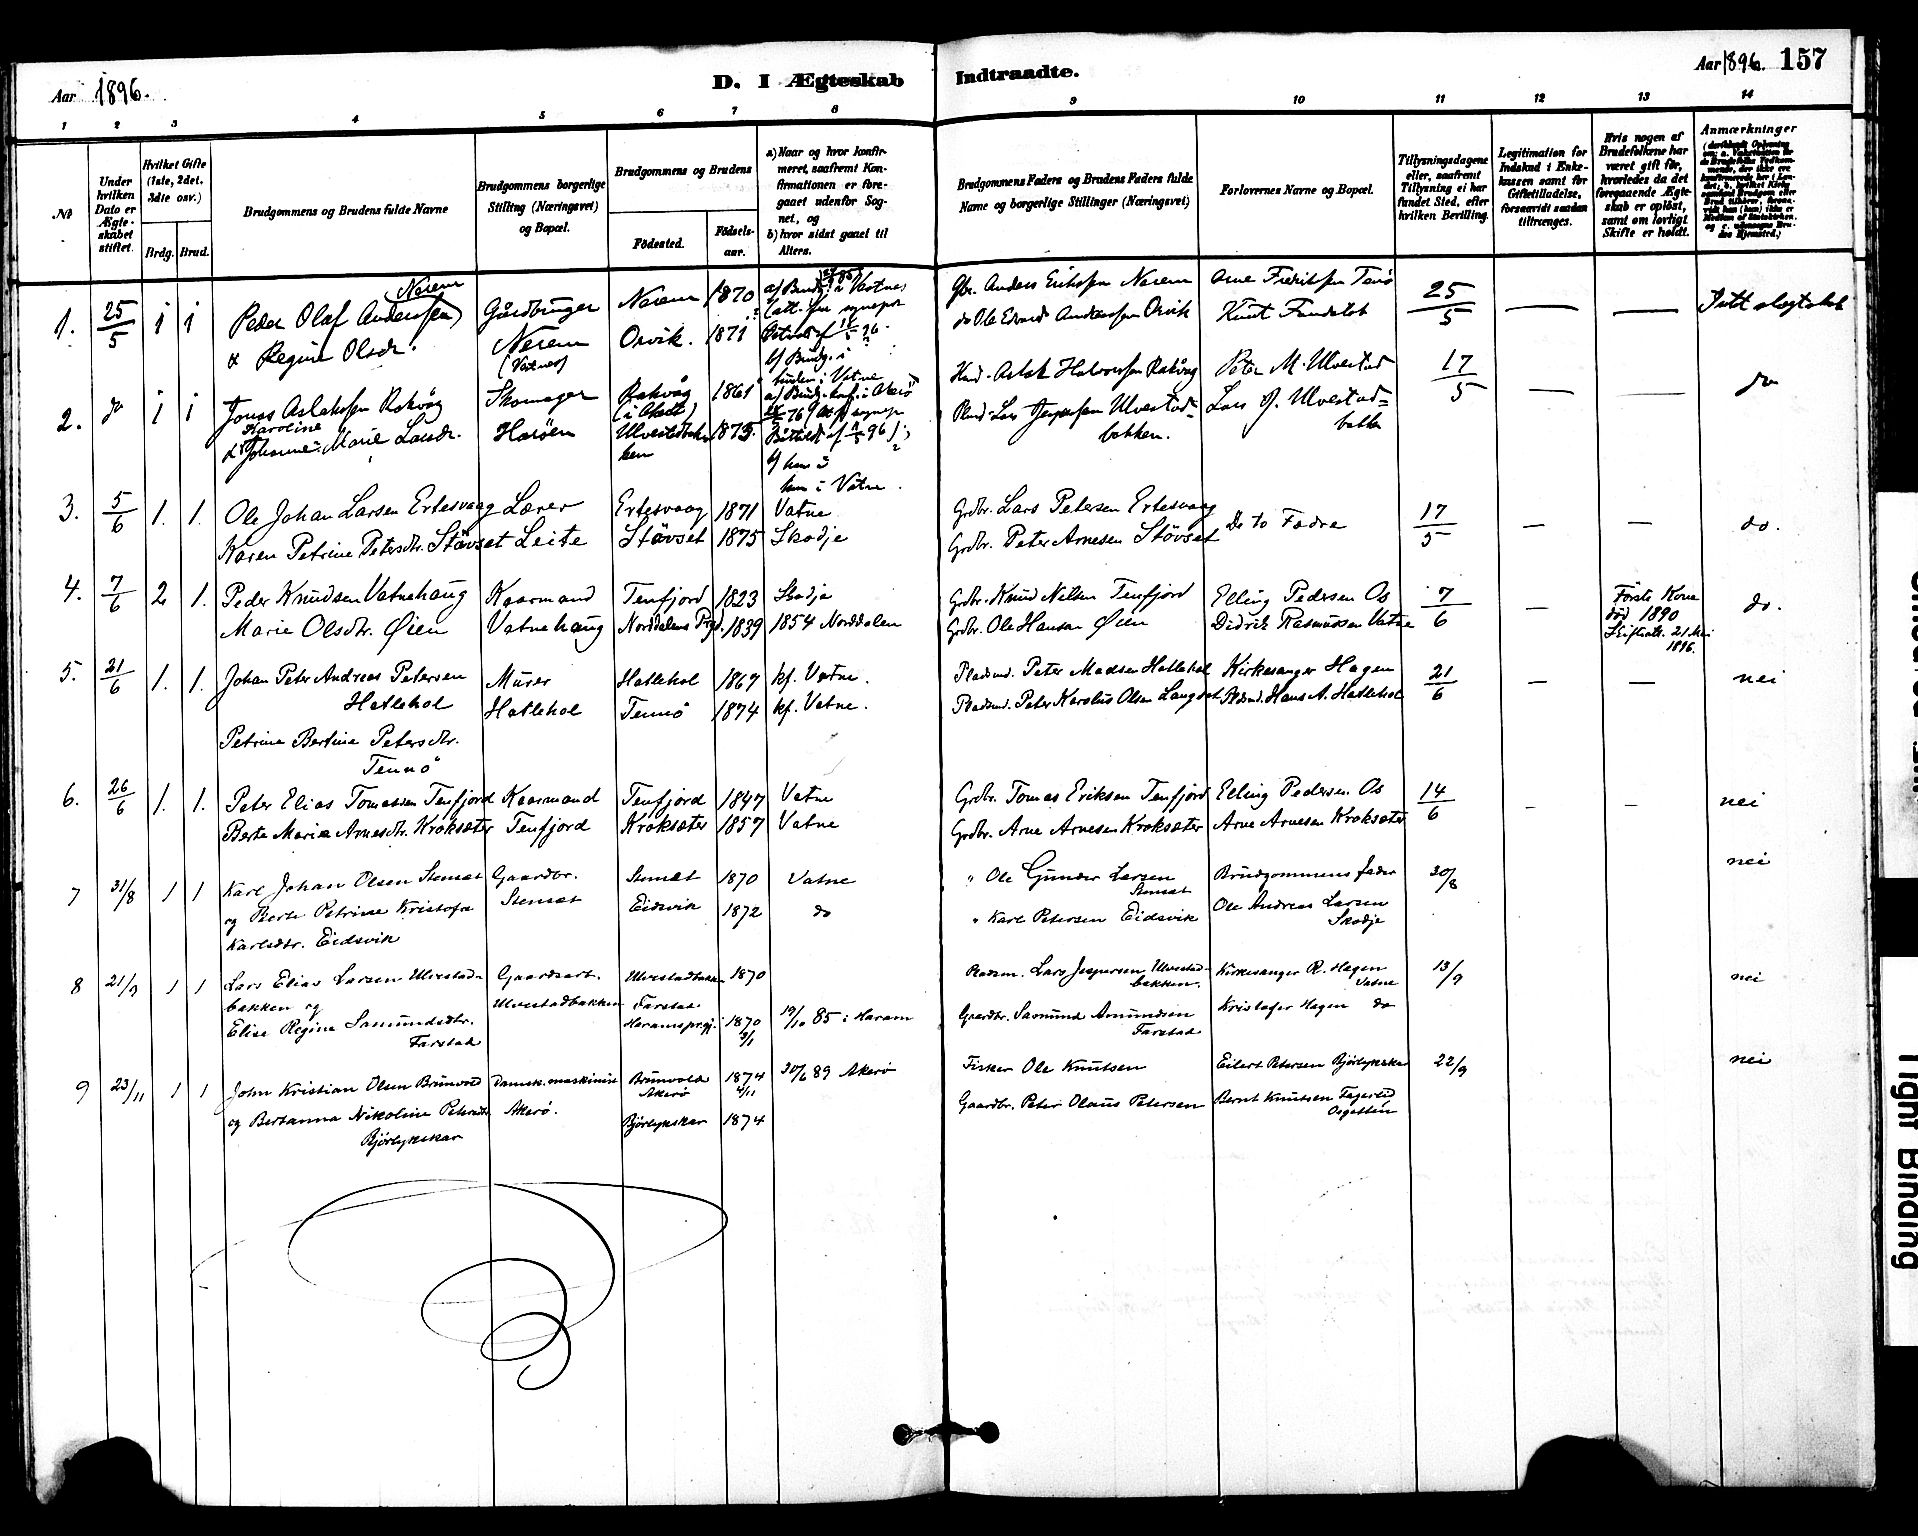 Aar 1896.
D. I Ægteskab Indtraadte.
Aar 1896. 157
1 2 3 4 5 6 7 8 9 10 11 12 13 14
No
Under hvilken Dato er Ægteskabet stiftet.
Hvilket Gifte (1ste, 2det, 3die osv.)
Brdg. Brud.
Brudgommens og Brudens fulde Navne
Brudgommens borgerlige Stilling (Næringsvei) og Bopæl.
Brudgommens og Brudens
Födested. Födselsaar.
a) Naar og hvor konfirmeret, saafremt Konfirmationen er foregaaet udenfor Sognet, og
b) hvor sidst gaaet til Alters.
Brudgommens Faders og Brudens Faders fulde Navne og borgerlige Stillinger (Næringsvei)
Forlovernes Navne og Bopæl.
Tillysningsdagene eller, saafremt Tillysning ei har fundet Sted, efter hvilken Bevilling.
Legitimation for Indskud i Enkekassen samt for Giftetilladelse, forsaavidt saadan tiltrænges.
Hvis nogen af Brudefolkene har været gift før, hvorledes da det foregaaende Ægteskab er opløst, samt om lovligt Skifte er holdt.
Anmærkninger
1. 25/5 1 1
Peder Olaf Andersen Nerem
& Regine Olsdr.
Gårdbruger
Nerem
(Vatnes)
Nerem 1870
Orvik. 1871
Gbr. Anders Eriksen Nerem
do Ole Edvard Anderssen Orvik
Arne Fredriksen Tenö
Knut
25/5 — —
2. do 1 1
Jonas Aslaksen Rokvåg
Karoline
& Johanne Marie Larsdr.
Skomager
Harøen
Rakvåg 1861
Ulvestadbakken 1875.
hun i Vatne.
Aslak Halvorsen Rakvåg
Lars Jespersen Ulvestadbakken.
Peter M. Ulvestad
Lars J. Ulvestadbakken
17/5 — — do
3. 5/6 1. 1.
Ole Johan Larsen Ertesvaag
Karen Petrine Petersdtr. Stövset
Lærer
Leite
Ertesvaag 1871 Vatne
Stövset 1875 Skodje
Grdbr. Lars Petersen Ertesvaag
Grdbr. Peter Arnesen Stövset
De to Fædre
17/5 — — do.
4. 7/6 2 1.
Peder Knudsen Vatnehaug
Marie Olsdtr. Øien
Kaarmand
Vatnehaug
Tenfjord 1823 Skodje
Norddalens Prgj. 1839 1854 Norddalen
Grdbr. Knud Nilsen Tenfjord
Grdbr. Ole Hansen Øien
Elling Pedersen Os
Didrik Rasmussen Vatne
7/6 —
Første Kone
død 1890
Skifteatt. 21 Mai
1896.
do.
5. 21/6 1. 1.
Johan Peter Andreas Petersen
Hatlehol
Petrine Bertine Petersdtr.
Tennö
Murer
Hatlehol
Hatlehol 1867 kf. Vatne.
Tennö 1874 kf. Vatne.
Pladsmd. Peter Madsen Hatlehol
Pladsmd. Peter Karolus Olsen Langset
Kirkesanger Hagen
Pldsmd. Hans A. Hatlehol
21/6 — — nei
6. 26/6 1. 1.
Peter Elias Tomassen Tenfjord
Berte Marie Arnesdtr. Kroksæter
Kaarmand
Tenfjord
Tenfjord 1847 Vatne
Kroksæter 1857 Vatne
Grdbr. Tomas Eriksen Tenfjord
Grdbr. Arne Arnesen Kroksæter
Elling Pedersen Os
Arne Arnesen Kroksæter
14/6 - - nei
7 31/8 1 1
Karl Johan Olsen Stensæt
og Berte Petrine Kristofa
Karlsdtr. Eidsvik
Gaardbr.
Stensæt
Stensæt 1870 Vatne
Eidsvik 1872 do
" Ole Gunder Larsen
Stensæt
" Karl Petersen Eidsvik
Brudgommens fader
Ole Andreas Larsen
Skodje
30/8
nei
8 21/9 1 1
Lars Elias Larsen Ulvestadbakken og
Elise Regine Samundsdtr.
Farstad
Gaardsarb.
Ulvestadbakken
Ulvestadbakken 1870
Farstad
Haramsprgj. 1870
3/1
19/10 85 i Haram
Pladsm. Lars Jespersen Ulvestadbakken.
Gaardbr. Samund Amundsen
Farstad
Kirkesanger R. Hagen
Vatne
Kristofer Hagen do
13/9
nei
9 23/11 1 1
John Kristian Olsen Brunvold
og Bertanna Nikoline Petersdtr.
Bjørlykskar
Dampsk.maskinist
Akerø.
Brunvold 1874
Akerø 4/11
Bjørlykskar 1874
30/6 89 Akerø
Fisker Ole Knutsen
Gaardbr. Peter Olaus Petersen
Eilert Petersen Bjørlykskar
Bernt Knutsen
22/9
nei
Tight Binding